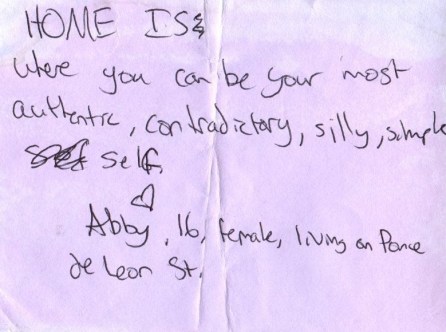 HOME IS:
where you can be your most
authentic, contradictory, silly, simple
self.
Abby, 16, female, living on Ponce
de Leon St.